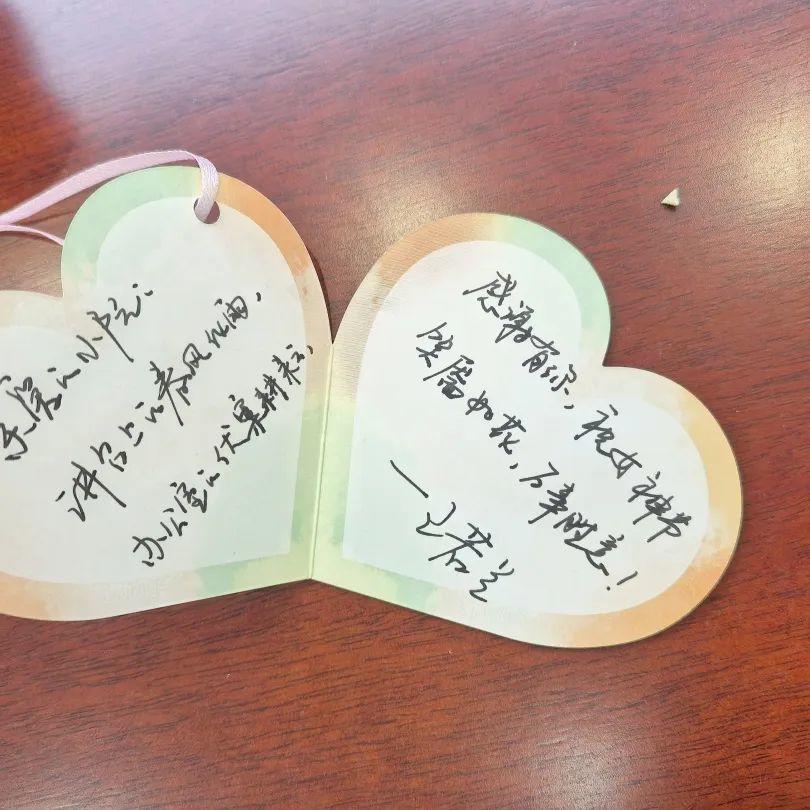 亲爱的小院:
讲台上的春风化雨,
办公室的伏案耕耘,
感谢有你,祝女神节
笑靥如花,万事胜意!
一记若兰